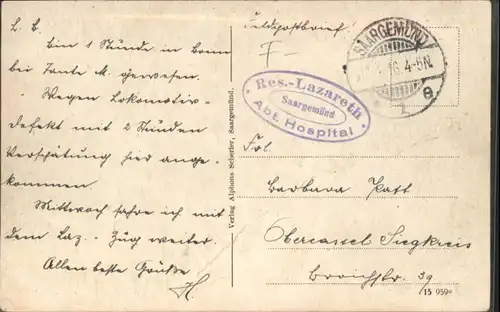 L. B.
Bin 1 Stunde in Bonn
bei Tante M. gewesen.
Wegen Lokomotiv-
defekt mit 2 Stunden
Verspätung hier ange-
kommen.
Mittwoch fahre ich mit
dem Laz.-Zug weiter.
Allen beste Grüße
H.
Verlag Alphons Scherier, Saargemünd.
Feldpostbrief!
SAARGEMÜND
16. 4-5N.
a
Res.-Lazareth
Saargemünd
Abt. Hospital
Frl.
Barbara Katt
Obercassel Siegkreis
Broichstr. 39
15 959